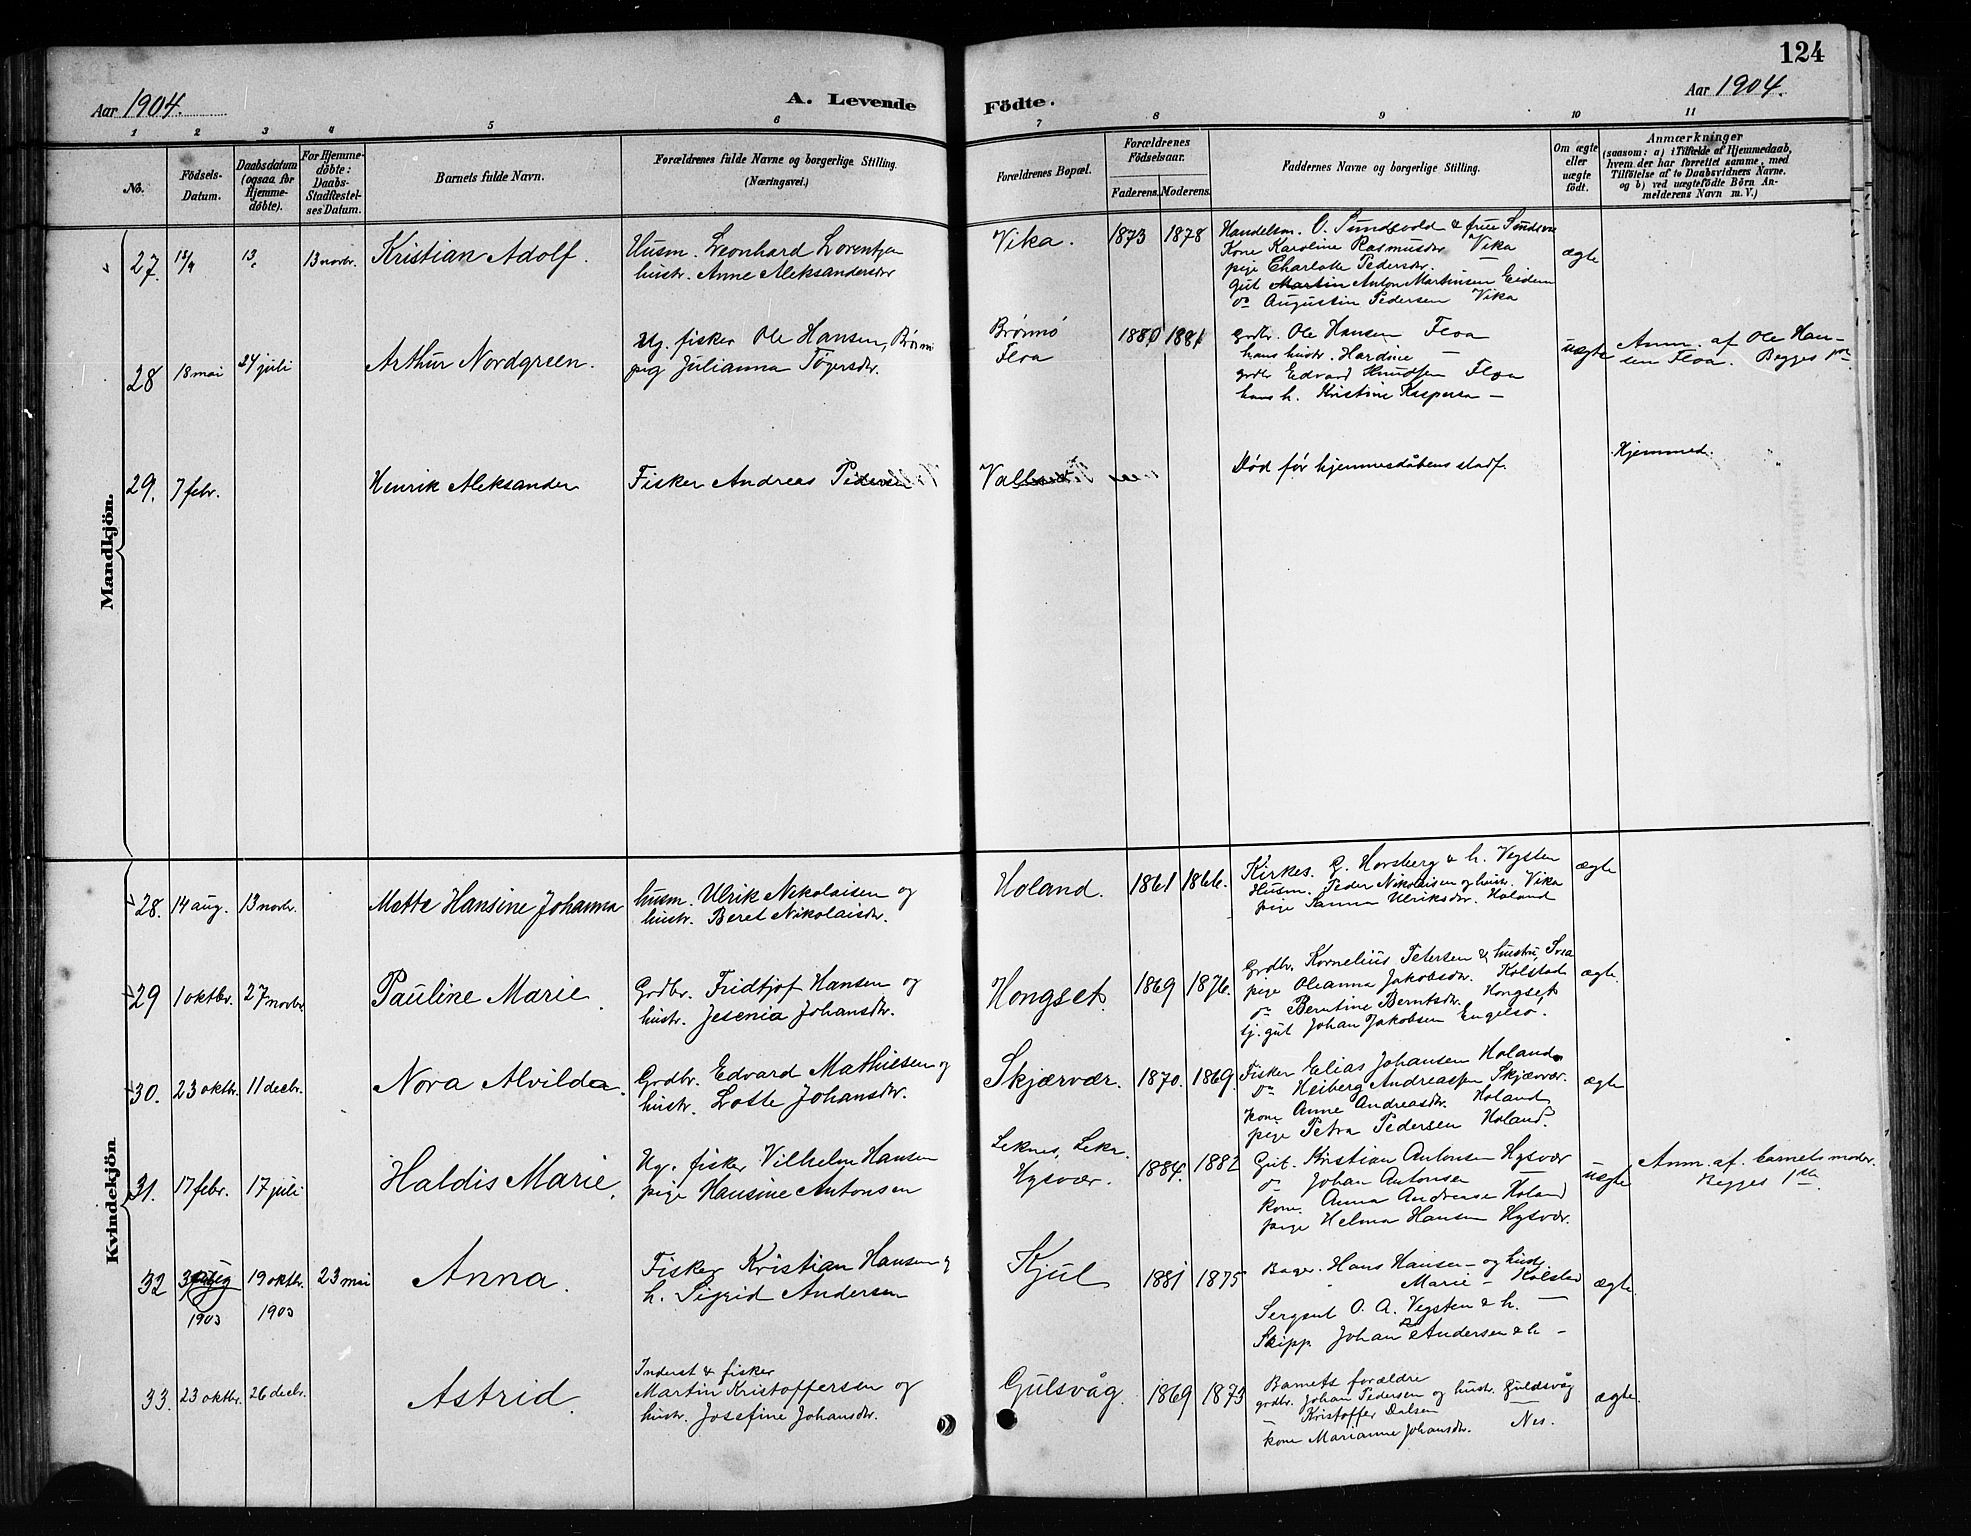 124
Aar 1904.
A. Levende
Födte.
Aar 1904.
1 2 3 4 5 6 7 8 9 10 11
No.
Födsels-Datum.
Daabsdatum (ogsaa for Hjemme-döbte).
For Hjemme-döbte: Daabs-Stadfæstel-ses Datum.
Barnets fulde Navn.
Forældrenes fulde Navne og borgerlige Stilling.
(Næringsvei.)
Forældrenes Bopæl.
Forældrenes Födselsaar.
Faderens. Moderens.
Faddernes Navne og borgerlige Stilling.
Om ægte eller uægte födt.
Anmærkninger
(saasom: a) i Tilfælde af Hjemmedaab,
hvem der har forrettet samme, med
Tilföielse af to Daabsvidners Navne.
og b) ved uægtefödte Börn An-
melderens Navn m. V.)
Mandkjön.
27. 13 13 novbr. Kristian Adolf.
Husm. Leonhard Lorentzen
hustr. Anne Aleksandersdtr
Vika. 1873 1878
Handelsm. O. Sundsvold & frue
Kone Karoline Rasmusdtr Vika
pige Charlotte Pedersdtr.
Gut Martin Anton Martinsen Eidem
do Augustin Pedersen Vika
ægte
28 18 mai 24 juli Arthur Nordgreen.
Ug. fisker Ole Hansen, Brønnø
pig Julianna Tögersdtr.
Brønnö
Floa
1880 1881
Grdbr. Ole Hansen Floa
hans hustr. Hardine —
grdbr Edvard Knudsen Floa
hans h. Kristine Kaspersen —
uægte
Anm. af Ole Han-
sen Floa. Begges
29. 7 febr. Henrik Aleksander
Fisker Andreas Pedersen
Død før hjemmedåbens stadf.
Hjemmed.
Kvindekjön
28. 14 aug. 13 novbr. Mette Hansine Johanna
husm. Ulrik Nikolaisen og
hustr. Beret Nikolaisdtr.
Holand. 1861 1866.
Kirkes. G. Horsberg & h. Vegsten
Husm. Peder Nikolaisen og hustr. Vika
pige Sanna Ulriksdtr. Holand
ægte
29 1 oktbr. 27 novbr. Pauline Marie.
Grdbr. Fridtjof Hansen og
hustr. Jesenia Johansdtr.
Hongset 1869 1876.
Grdbr. Kornelius Petersen & hustru
pige Oleanna Jakobsdtr. Kolstad
do Berntine Berntsdtr. Hongset
gut Johan Jakobsen Engelsø.
ægte
30. 23 oktbr. 11 decbr. Nora Alvilda.
Grdbr. Edvard Mathiesen og
hustr. Lotte Johansdtr.
Skjærvær. 1870. 1869.
Fisker Elias Johansen Holand
Do Heiberg Andreassen Skjærvær.
Kone Anne Andreasdtr. Holand
pige Petra Pedersen Holand.
ægte
31. 17 febr. 17 juli Haldis Marie.
Ug. fisker Vilhelm Hansen
pige Hansine Antonsen
Leknes, Leka.
Hysvær.
1884. 1882
Gut. Kristian Antonsen Hysvær
do Johan Antonsen —
kone. Anna Andrease Holand
pige Helma Hansen Hysvær.
uægte
Anm. af. barnets moder.
Begges
32 1903 19 oktbr. 1903 23 mai Anna.
Fisker Kristian Hansen &
h. Sigrid Andersen
Kjul 1881 1875
Bager. Hans Hansen og hustr.
Marie — Kolstad
Sergent O. A. Vegsten & h. —
Skipp. Johan Andersen & h —
ægte.
33. 23 oktbr. 26 decbr. Astrid.
Inderst & fisker
Martin Kristoffersen og
hustr. Josefine Johansdtr.
Gulsvåg. 1869 1873
Barnets forældre
grdbr. Johan Pedersen og hustr. Guldsvåg
Kristoffer Dalsen —
kone Marianne Johansdtr. Nes.
ægte.